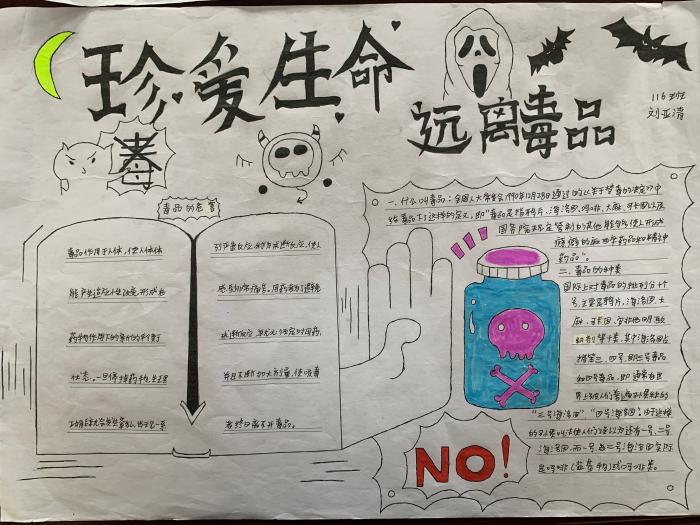 珍爱生命
远离毒品
116班
刘亚清
毒
毒品的危害
毒品作用于人体,使人体体
能产生适应性改变,形成在
药物作用下的新的平衡
状态。一旦停掉药物,生理
功能就会发生紊乱,出现一系
列严重反应,称为戒断反应,使人
感到非常痛苦。用药者为了避免
戒断反应,就必须定时用药,
并且不断加大剂量,使吸毒
者终日离不开毒品。
一、什么叫毒品:全国人大常委会1990年12月28日通过的《关于禁毒的决定》中
给毒品下了这样的定义,即"毒品是指鸦片、海洛因、吗啡、大麻、可卡因以及
国务院规定管制的其他能够使人形成
瘾癖的麻醉药品和精神
药品"。
二、毒品的种类
国际上对毒品的排列分十个
号,主要是鸦片、海洛因、大
第十类,其中海洛因
三、四号,即三号毒品
和四号毒品,即通常在世
"三号海洛因""四号海洛因"。由于这样
一号、二号
海洛因,而一号与二号海洛因实际
是吗啡
NO!